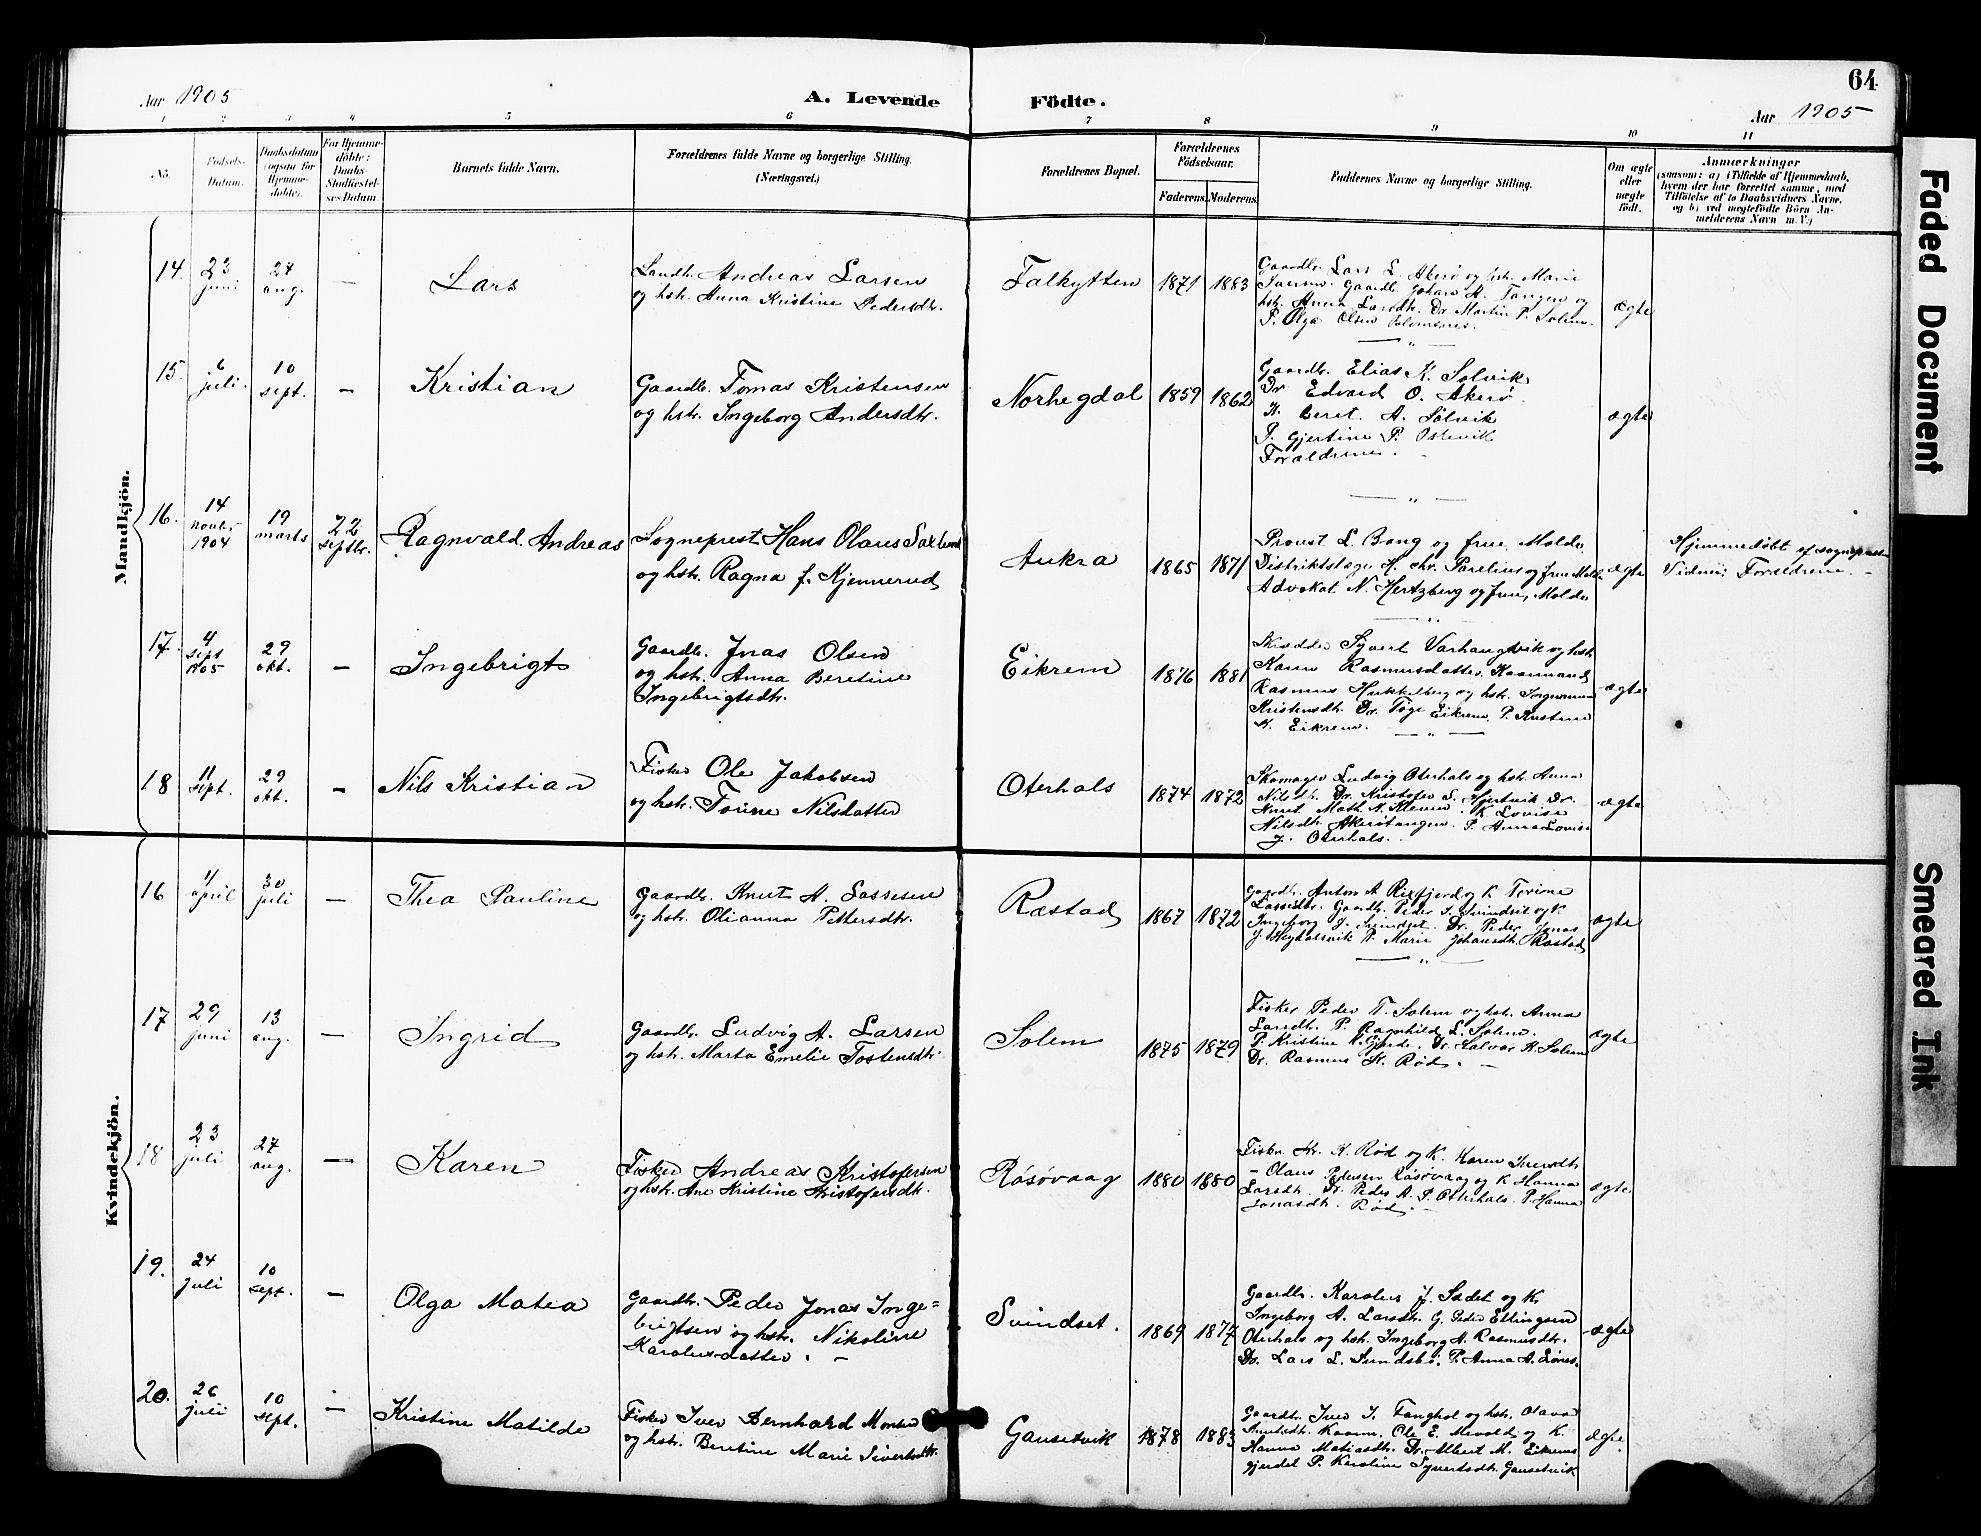 64
Aar 1905
A. Levende Födte.
Aar 1905
1 2 3 4 5 6 7 8 9 10 11
No.
Födsels-
Datum.
Daabsdatum
(ogsaa for
Hjemme-
døbte).
For Hjemme-
döbte:
Daabs-
Stadfæstel-
ses Datum
Barnets fulde Navn.
Forældrenes fulde Navne og borgerlige Stilling.
(Næringsvei.)
Forældrenes Bopæl.
Forældrenes
Födselsaar.
Faderens.
Moderens.
Faddernes Navne og borgerlige Stilling.
Om ægte
eller
uægte
født.
Anmærkninger
(saasom: a) i Tilfælde af Hjemmedaab,
hvem der har forrettet samme, med
Tilföielse af to Daabsvidners Navne.
og b) ved uægtefödte Börn An-
melderens Navn m. V.)
Mandkjön.
14. 23 juni
24 aug.
—
Lars
Landh. Andreas Larsen
og hstr. Anna Kristine Pedersdtr.
Falkytten
1871 1883
Gaardbr. Lars L. Akerø og hstr. Marie
Iversen. Gaardb. Johan A. Tangen og
hstr. Anna Larsdtr. Dr. Martin P. Solem.
P. Olga Olsen
ægte
15. 6 juli.
10 sept.
—
Kristian
Gaardbr. Tomas Kristensen
og hstr. Ingeborg Andersdtr.
Norhegdal
1859 1862
Gaardbr. Elias K. Solvik
Dr. Edvard O. Akerø.
K. Beret A. Sølvik
P. Gjertine P. Ostevik
Forældrene.
ægte
16. 14 novbr. 1904
19 marts
22 septbr.
Ragnvald Andreas
Sogneprest Hans Olaus Saxlund
og hstr. Ragna f. Kjennerud
Aukra
1865 1871
Provst L. Bang og frue, Molde
Distriktslæge H. Chr. Parelius og frue Molde
Advokat N. Hertzberg og frue, Molde
ægte
Hjemmedøbt af sognepresten
Vidner: Forældrene. —
17. 4 sept 1905
29 okt.
—
Ingebrigt
Gaardbr. Jnas Olsen
og hstr. Anna Beretine
Ingebrigtsdtr.
Eikrem
1876 1881
Skrædder Syvert Varhaugvik og hstr.
Karen Rasmusdatter. Kaarmand
Rasmus Hukkelberg og hstr.
Kristensdtr. Dr. Tøge Eikrem. P. Kristine
K. Eikrem.
ægte
18 11 sept.
29 okt.
—
Nils Kristian
Fisker Ole Jakobsen
og hstr. Torine Nilsdatter
Oterhals
1874 1872
Skomager Ludvig Oterhals og hstr. Anna
Nilsdtr. Dr. Kristofer S. Hjertvik Dr.
Knut Math. N. K. Lovise
Nilsdtr. Akerøtangen. P. Anna Lovise
J. Oterhals.
ægte
Kvindekjön.
16 11 april
30 juli
—
Thea Pauline
Gaardbr. Knut A. Lassesen
og hstr. Olianna Pettersdtr.
Ræstad
1867 1872
Gaardbr. Anton A. Rixfjord og K. Torine
Lassedtr. Gaardbr. Peder J. Svindset og K.
Ingeborg J. Svindset. Dr. Peder Jonas
P. Marie Johansdtr. Ræstad
ægte
17 29 juni
13 aug.
—
Ingrid
Gaardbr. Ludvig A. Larsen
og hstr. Marta Emelie Tostensdtr.
Solem
1875 1879
Fisker Peder T. Solem og hstr. Anna
Larsdtr. P. Ragnhild L. Solem.
P. Kristine K. Gjerde. Dr. Halvor R. Solem
Dr. Rasmus K. Rød. —
ægte
18 23 juli
27 aug.
—
Karen
Fisker Andreas Kristofersen
og hstr. Ane Kristine Kristofersdtr.
Røsøvaag
1880 1880
Fisker Kr. K. Rød og K. Karen Iversdtr.
— Olaus Pedersen Røsøvaag og K. Hanna
Larsdtr. Dr. Peder A. P. Otterhals. P. Hanna
Jonasdtr. Rød. —
ægte
19. 24 juli
10 sept.
—
Olga Matea
Gaardbr. Peder Jonas Inge=
brigtsen og hstr. Nikoline
Karolusdatter. —
Svindset.
1869 1877
Gaardbr. Karolus J. Sædet og K.
Ingeborg A. Larsdtr. G. Peder Ellingsen
Oterhals og hstr. Ingeborg A. Rasmusdtr.
Dr. Lars L. Sundsbø. P. Anna A.
ægte
20. 26 juli
10 sept.
—
Kristine Matilde
Fisker Iver Bernhard Monsen
og hstr. Beretine Marie Sivertsdtr.
Gausetvik
1878 1883
Gaardbr. Iver I. Fanghol og hstr. Olava
Kaarm. Ole E. Mevold og K.
Hanna Matiasdtr. Dr. Albert M. Eikrems
gjerdet P. Karoline Syvertsdtr. Gausetvik
ægte
Faded Document
Smeared Ink